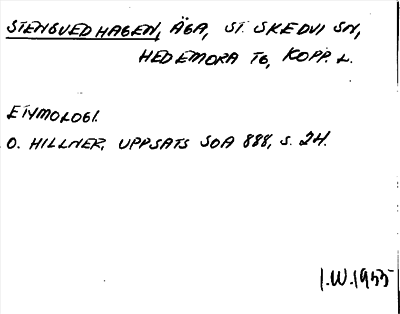 STENGVEDHAGEN, ÄGA, ST. SKEDVI SN,
HEDEMORA TG, KOPP. L.
ETYMOLOGI.
O. HILLNER, UPPSATS SOA 888, S. 24.
I.W.1955